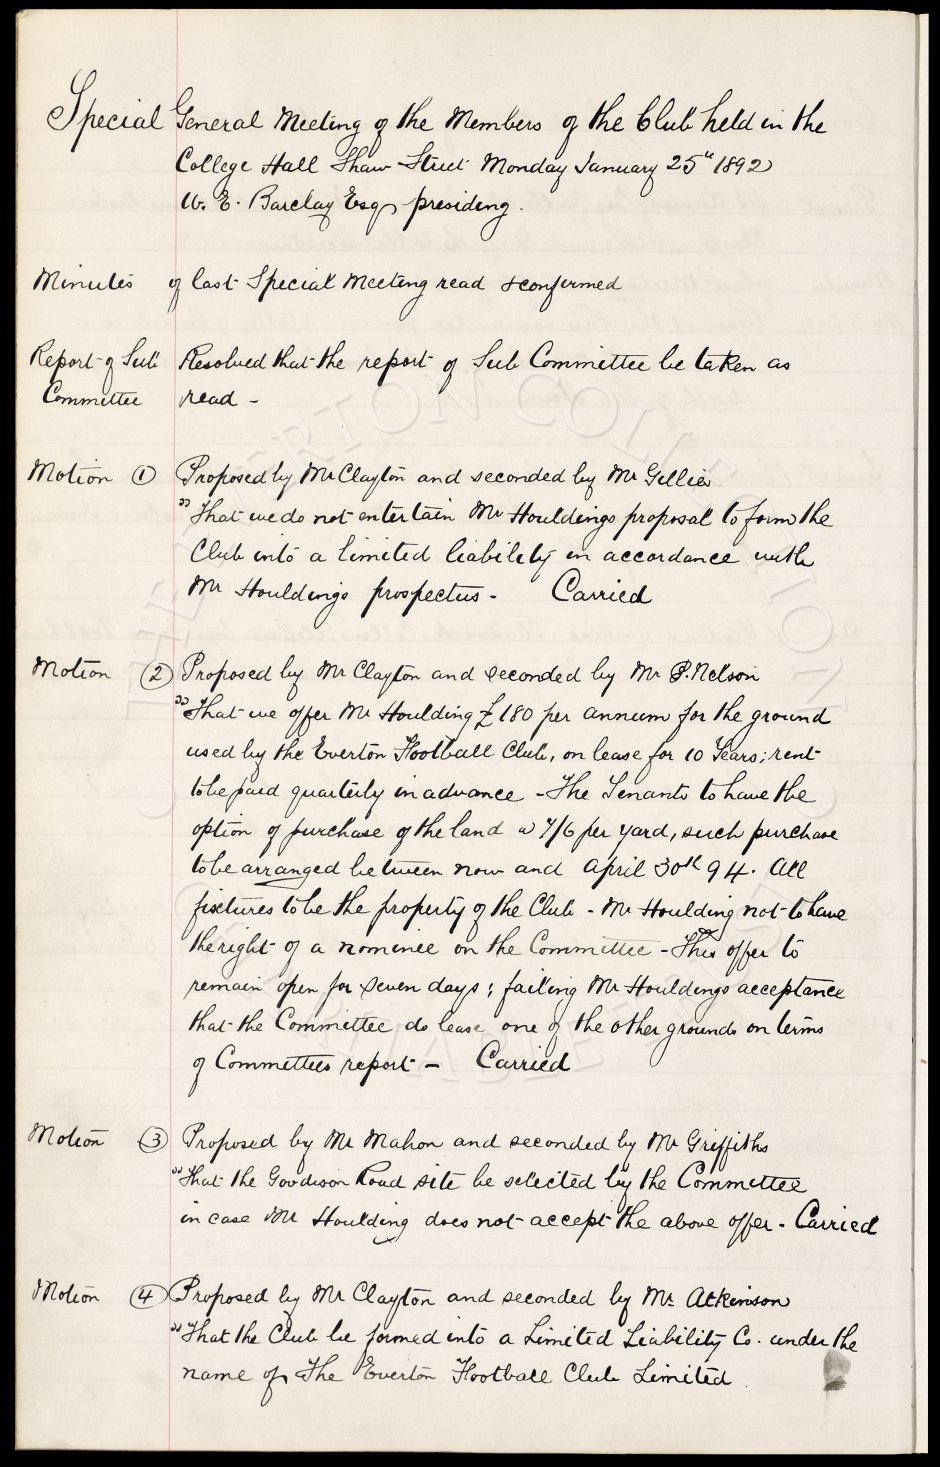 Special General Meeting of the Members of the Club held in the
College Hall Shaw Street Monday January 25th 1892
W. E. Barclay Esq presiding.
Minutes of last Special Meeting read & confirmed
Report of Sub Committee
Resolved that the report of Sub Committee be taken as
read -
Motion 1 Proposed by Mr Clayton and seconded by Mr Gillies
"That we do not entertain Mr Houldings proposal to form the
Club into a limited liability in accordance with
Mr Houldings prospectus - Carried
Motion 2 Proposed by Mr Clayton and seconded by Mr P. Nelson
"That we offer Mr Houlding £180 per annum for the ground
used by the Everton Football Club, on lease for 10 Years; rent
to be paid quarterly in advance - The Tenants to have the
option of purchase of the land @ 7/6 per yard, such purchase
to be arranged between now and April 30th 94. All
fixtures to be the property of the Club - Mr Houlding not to have
the right of a nominee on the Committee - This offer to
remain open for seven days; failing Mr Houldings acceptance
that the Committee do lease one of the other grounds on terms
of Committees report - Carried
Motion 3 Proposed by Mr Mahon and seconded by Mr Griffiths
"That the Goodison Road site be selected by the Committee
in case Mr Houlding does not accept the above offer - Carried
Motion 4 Proposed by Mr Clayton and seconded by Mr Atkinson
"That the Club be formed into a Limited Liability Co. under the
name of The Everton Football Club Limited